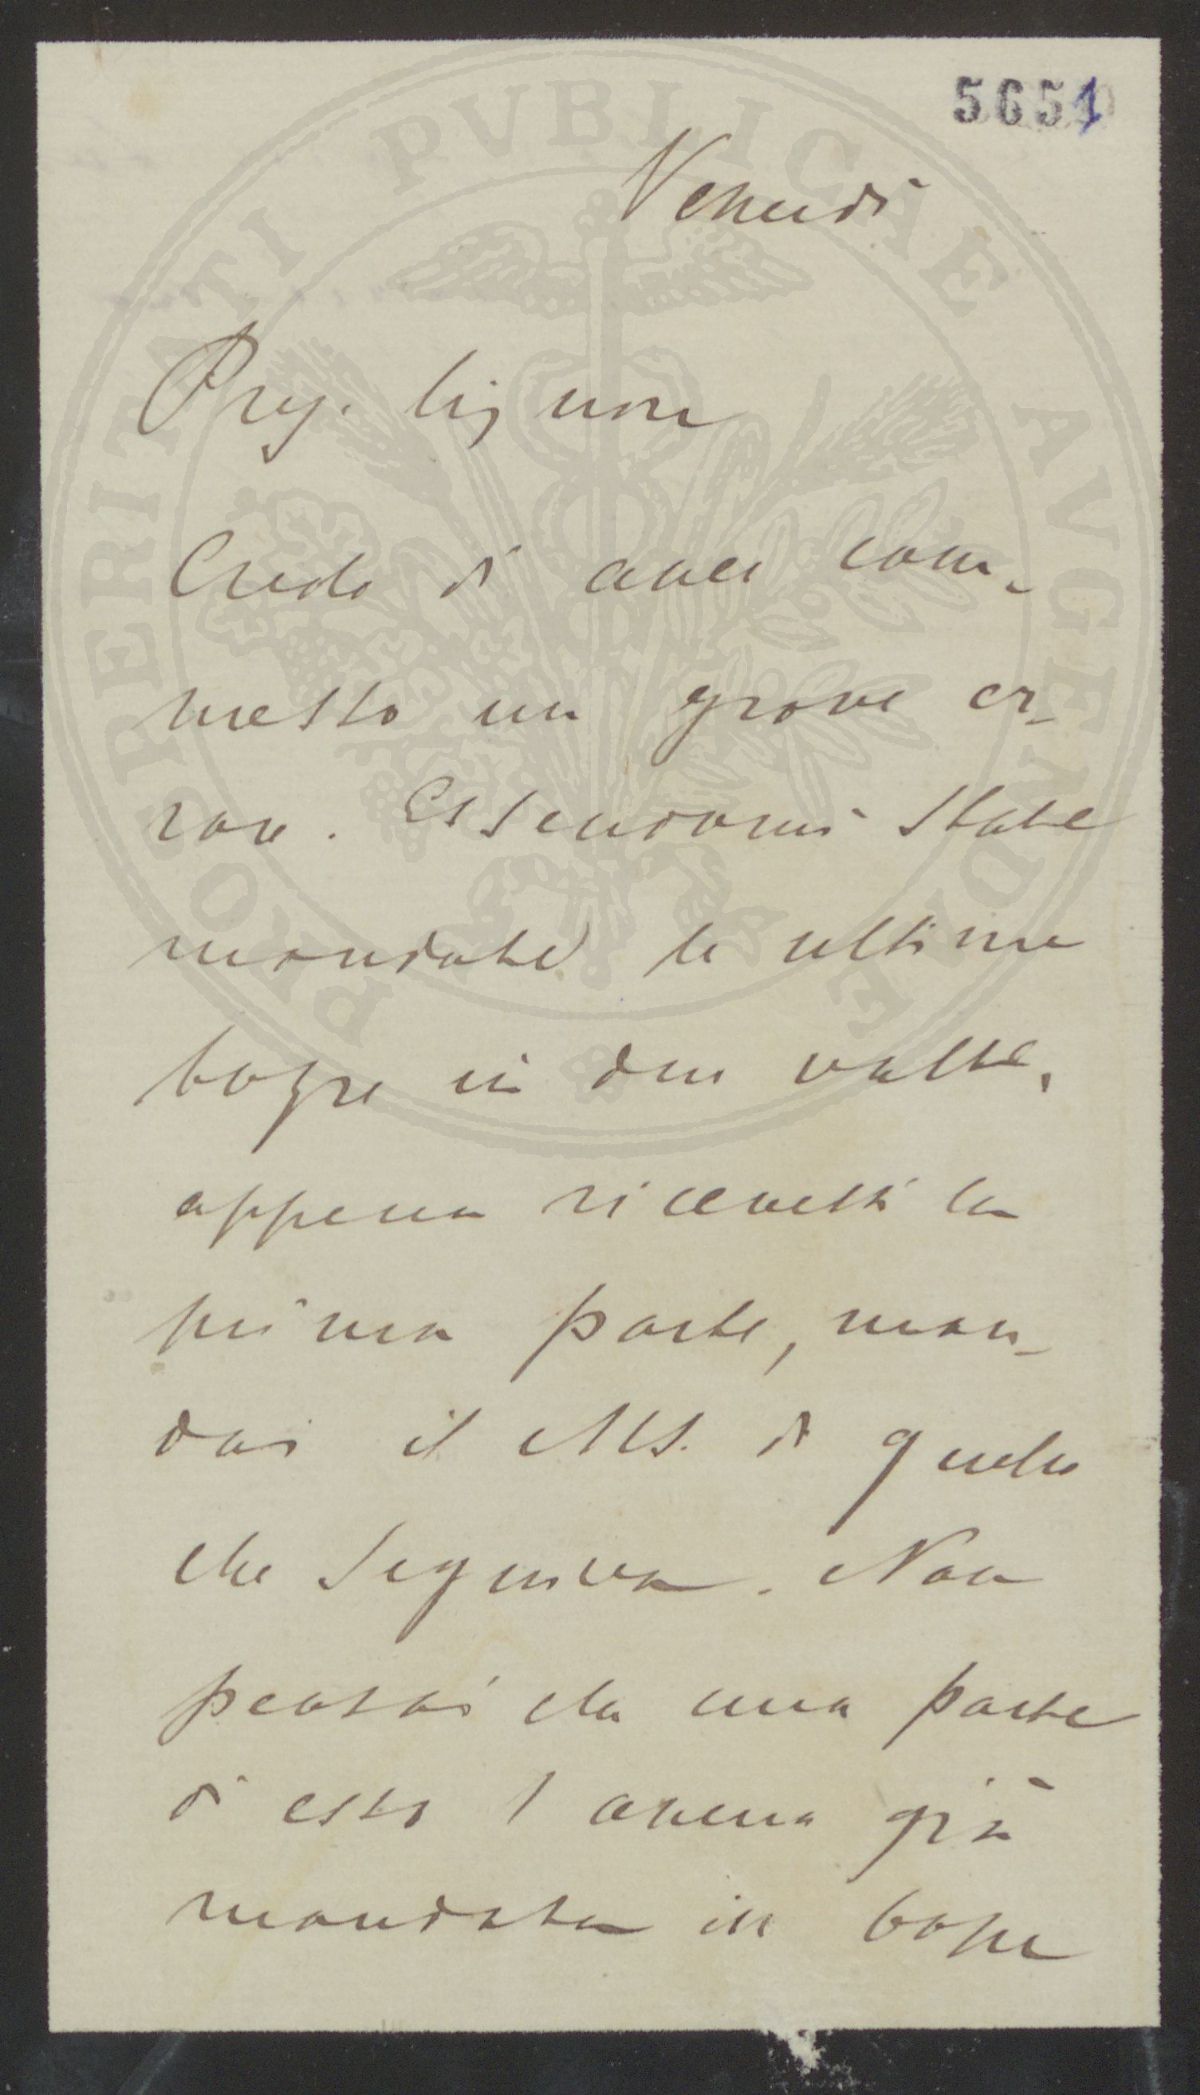 5651
Venerdì
Preg. Signore
Credo di aver com-
messo un grave er-
rore. Essendomi state
mandate le ultime
bozze in due volte,
appena ricevetti la
prima parte, man-
dai il MS. di quello
che seguiva. Non
pensai che una parte
di esso l aveva già
mandata in bozze
PROSPERITATI PVBLICAE AVGENDAE